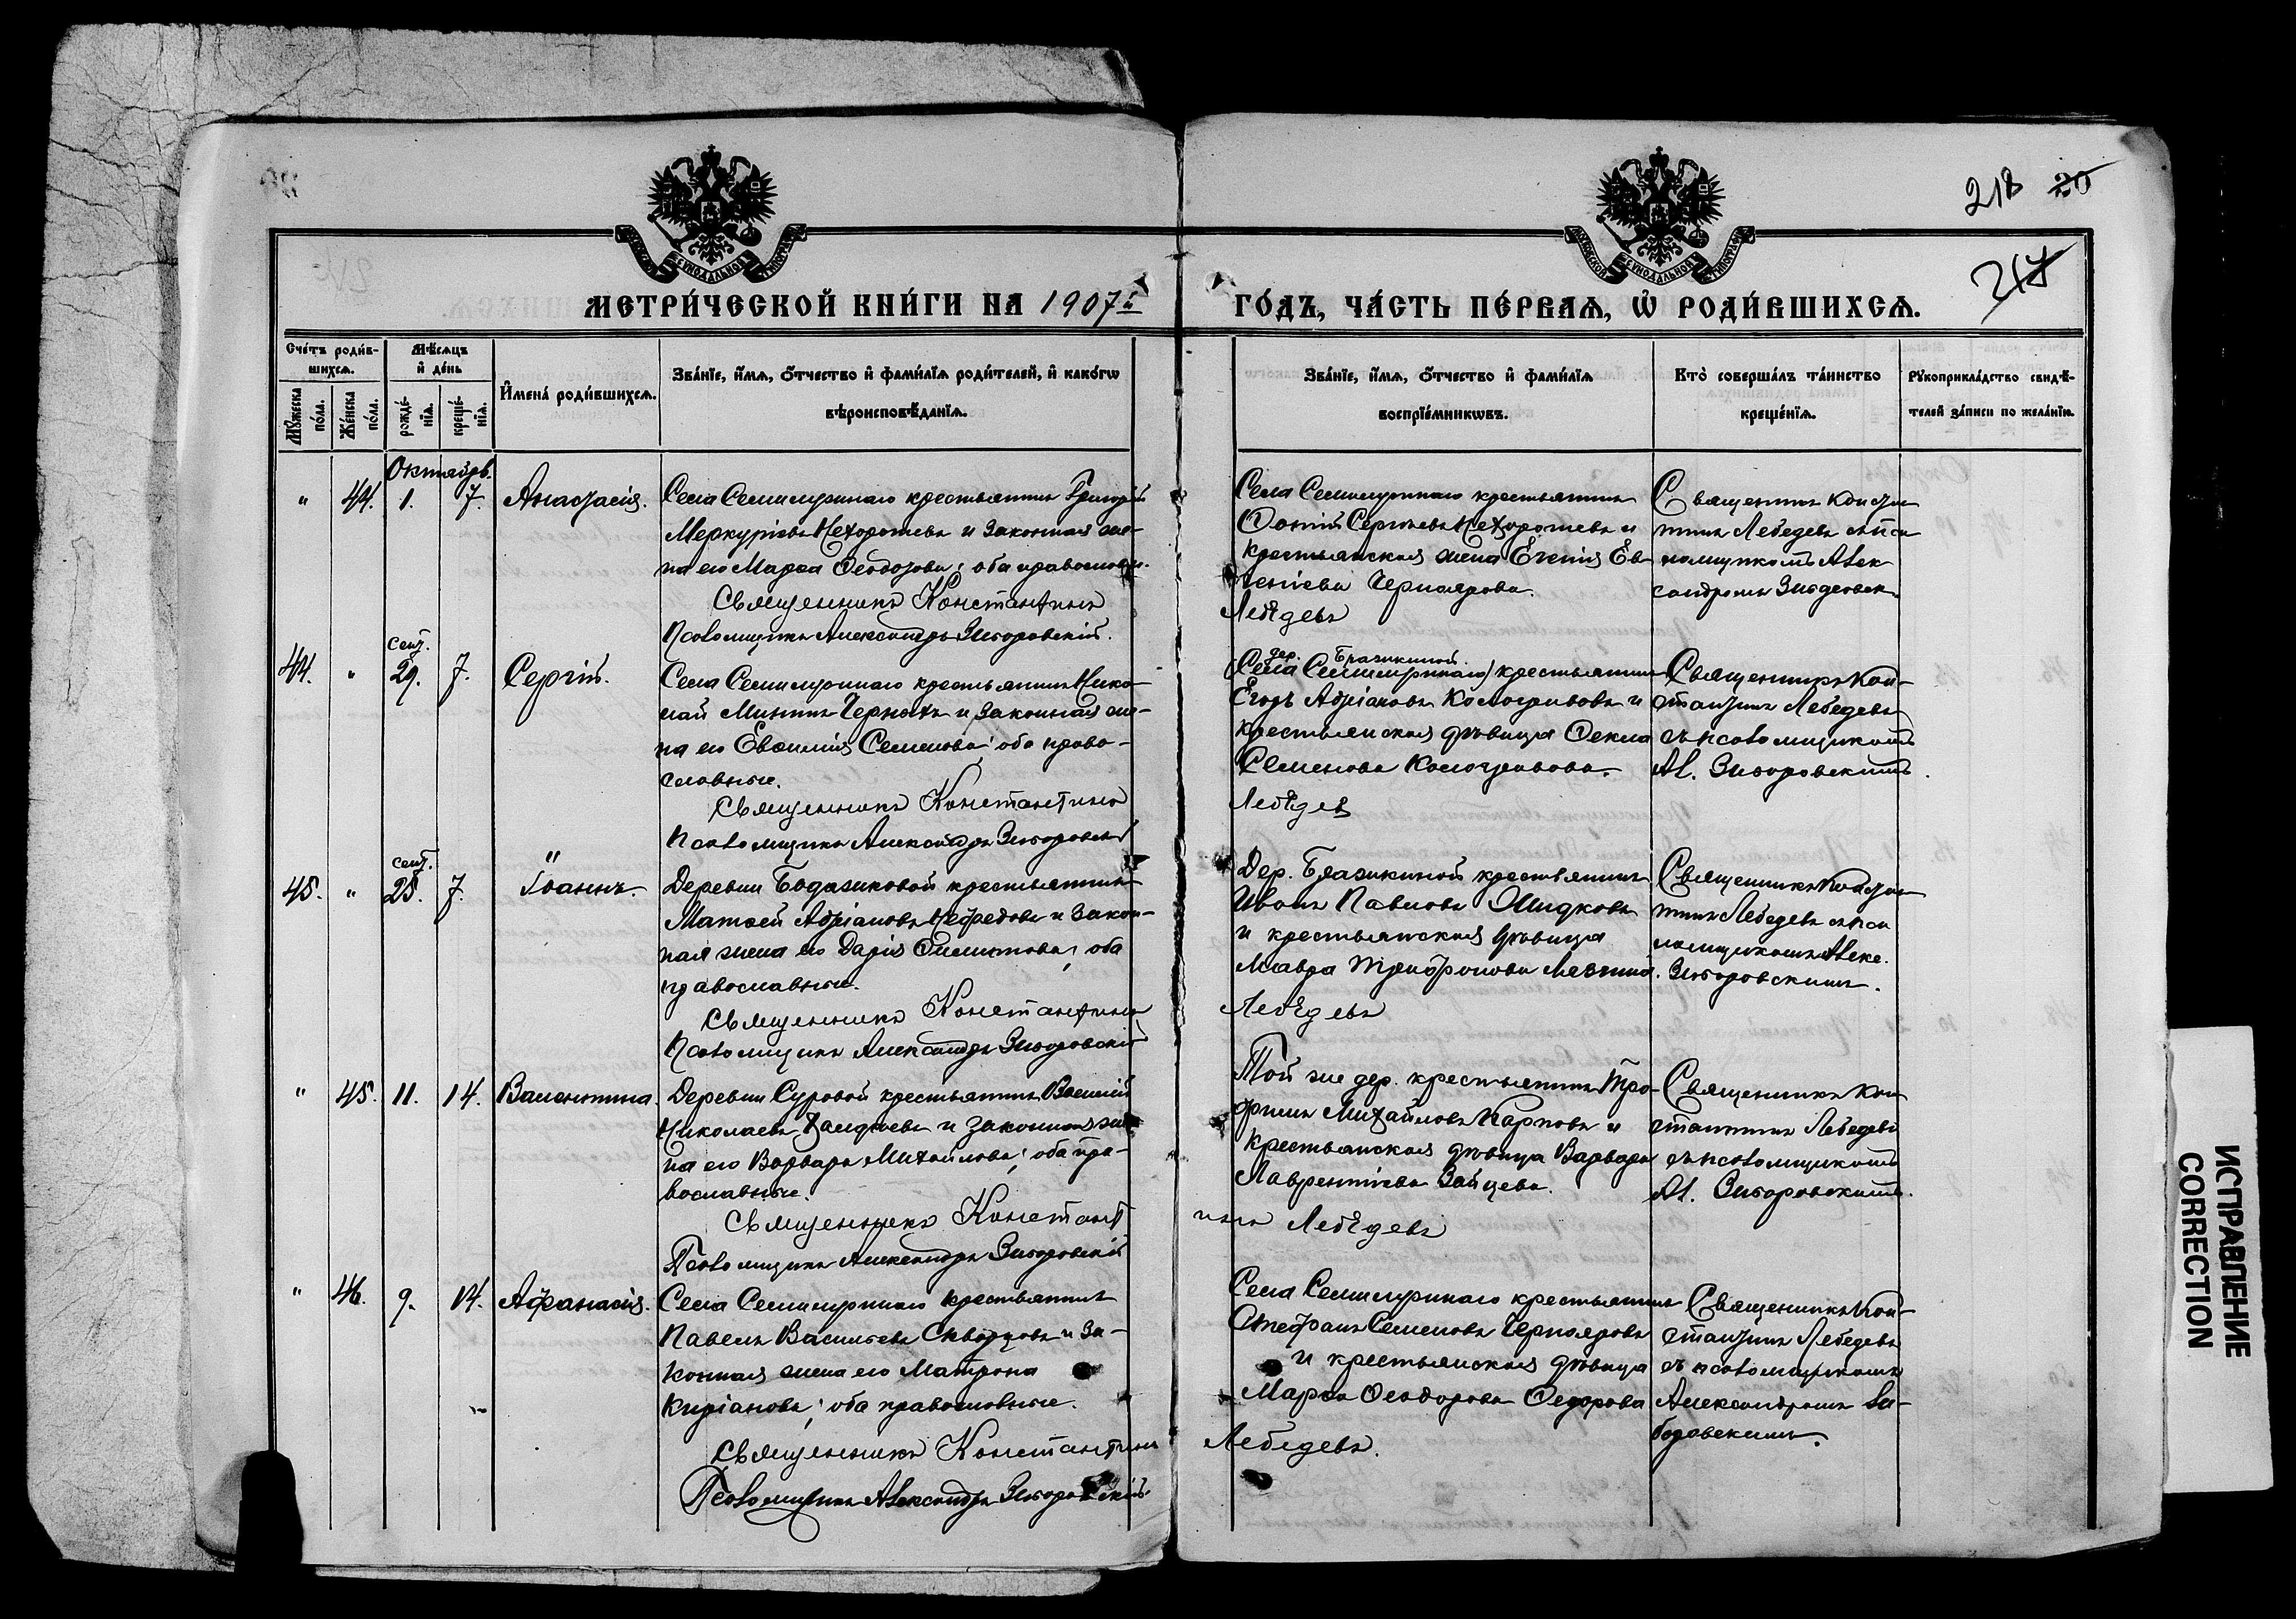 218 20
217
МЕТРИ́ЧЕСКОЙ КНИ́ГИ НА 1907й ГО́ДЪ, ЧА́СТЬ ПЕ́РВАѦ, Ѡ҆ РОДИ́ВШИХСѦ.
Сче́тъ роди́в-
шихсѧ.
Мꙋ́жеска по́ла.
Же́нска по́ла.
Мѣ́сѧцъ
и҆ де́нь
рожде́-
нїѧ.
креще́-
нїѧ.
И҆мена̀ роди́вшихсѧ.
Зва́нїе, и҆́мѧ, ѻ҆́тчество и҆ фами́лїѧ роди́телей, и҆ како́гѡ
вѣроисповѣ́данїѧ.
Зва́нїе, и҆́мѧ, ѻ҆́тчество и҆ фами́лїѧ
воспрїе́мникѡвъ.
Кто̀ соверша́лъ та́инство
креще́нїѧ.
Рꙋкоприкла́дство свидѣ́-
телей за́писи по жела́нїю.
Октябрь.
" 44. 1. 7. Анастасія.
Села Семилужнаго крестьянинъ Григорій
Меркуріевъ Нехорошевъ и законная же-
на его Марѳа Ѳеодорова; оба православн.
Священникъ Константинъ Лебѣдевъ
Псаломщикъ Александръ Зиборовскій.
Села Семилужнаго крестьянинъ
Сергѣевъ Нехорошевъ и
крестьянская жена Евгенія Ев-
геніева Черноярова.
Священникъ Констан-
тинъ Лебедевъ съ пса
ломщикомъ Алек
сандромъ
44. " сент. 29. 7. Сергій.
Села Семилужнаго крестьянинъ Нико-
лай Мининъ Черныхъ и законная же-
на его Евѳимія Семенова; оба право-
славные.
Священникъ Константинъ Лебѣдевъ
Псаломщикъ Александръ Зиборовскій
дер. Бразкиной
(Села Семилужнаго) крестьянинъ
Егоръ Адріановъ Кологривовъ и
крестьянская дѣвица Ѳекла
Семенова Кологривова.
Священникъ Кон-
стантинъ Лебедевъ
съ псаломщикомъ
Ал. Зиборовскимъ.
45. " сент. 25. 7. Іоаннъ.
Деревни крестьянинъ
Матѳей Адріановъ Нефедовъ и закон-
ная жена его Дарія Филиппова; оба
православные.
Священникъ Константинъ Лебѣдевъ
Псаломщикъ Александръ Зиборовскій
Дер. Бразкиной крестьянинъ
Иванъ Павловъ
и крестьянская дѣвица
Мавра Трифонова
Священникъ Констан-
тинъ Лебедевъ съ пса
ломщикомъ Алекс.
Зиборовскимъ.
" 45. 11. 14. Валентина.
Деревни Суровой крестьянинъ Василій
Николаевъ и законная же-
на его Варвара Михайлова; оба пра-
вославные.
Священникъ Константинъ Лебѣдевъ
Псаломщикъ Александръ Зиборовскій
Той же дер. крестьянинъ Тро-
фимъ Михайловъ Карповъ и
крестьянская дѣвица Варвара
Лаврентіева Зайцева.
Священникъ Кон
стантинъ Лебедевъ
съ псаломщикомъ
Ал. Зиборовскимъ.
" 46. 9. 14. Афанасія.
Села Семилужнаго крестьянинъ
Павелъ Васильевъ Скворцовъ и за-
конная жена его Матрона
Киріанова; оба православные.
Священникъ Константинъ Лебедевъ.
Псаломщикъ Александръ Зиборовскій
Села Семилужнаго крестьянинъ
Стефанъ Семеновъ Чернояровъ
и крестьянская дѣвица
Марѳа Ѳеодорова Федорова
Священникъ Кон-
стантинъ Лебедевъ
съ псаломщикомъ
Александромъ Зи-
боровскимъ.
ИСПРАВЛЕНИЕ
CORRECTION